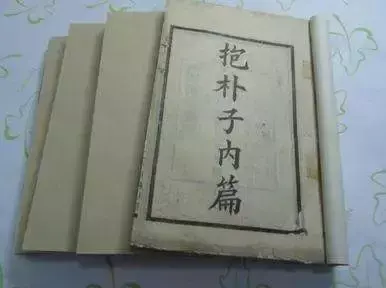 抱朴子内篇